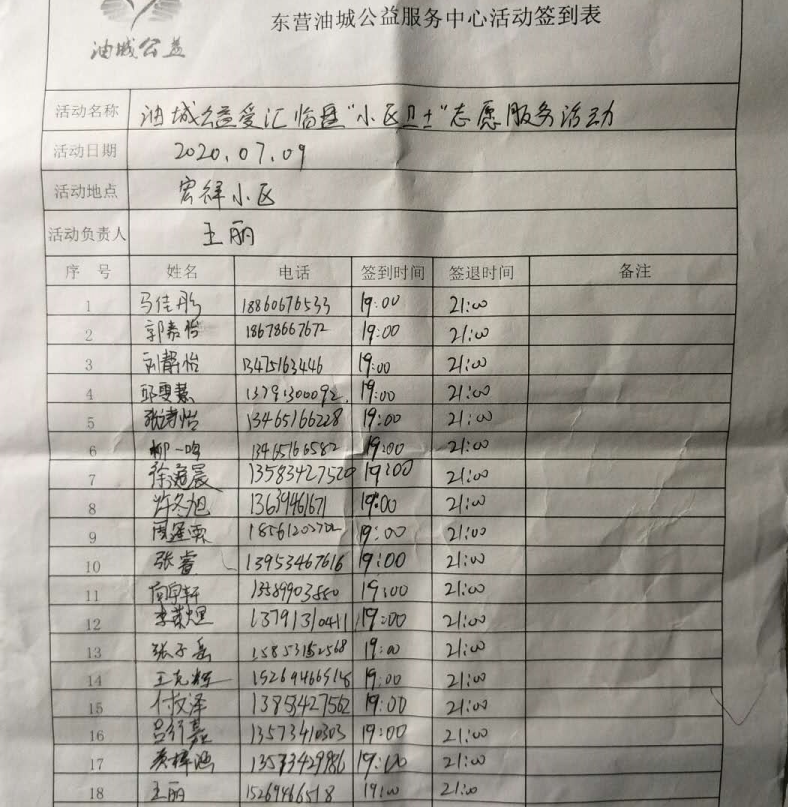 东营油城公益服务中心活动签到表
油城公益
活动名称 油城公益爱汇怡园"小区卫士"志愿服务活动
活动日期 2020.07.09
活动地点 宏祥小区
活动负责人 王丽
序 号 姓名 电话 签到时间 签退时间 备注
1 马佳彤 18860676533 19:00 21:00
2 郭嘉怡 18678667672 19:00 21:00
3 刘静怡 13475163446 19:00 21:00
4 邱雯慧 13791300092 19:00 21:00
5 张诗怡 13465166228 19:00 21:00
6 柳一鸣 13465166582 19:00 21:00
7 徐 晨 13583427520 19:00 21:00
8 许冬旭 13639461671 19:00 21:00
9 19:00 21:00
10 张睿 13953467616 19:00 21:00
11 13589903880 19:00 21:00
12 13791310411 19:00 21:00
13 张子 19:00 21:00
14 王 15269466518 19:00 21:00
15 付 泽 13853427562 19:00 21:00
16 吕 13573410303 19:00 21:00
17 13573429986 19:00 21:00
18 王丽 15269466518 19:00 21:00